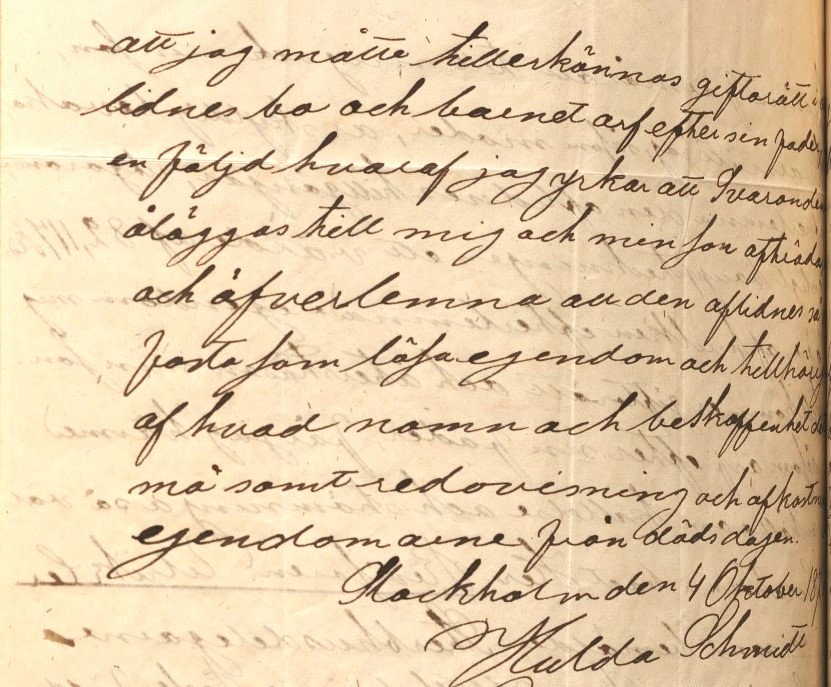 att jag måtte tillerkännas giftorätt i
lidnes bo och barnet arf efter sin fader,
en följd hvaraf jag yrkar att Svaranden
åläggas till mig och min son afträda
och öfverlemna all den aflidnes så
fasta som lösa egendom och tillhörig
af hvad namn och beskaffenhet de
må samt redovisning och afkastn
egendomarne från dödsdagen.
Stockholm den 4 Oktober 18
Hulda Schmidt